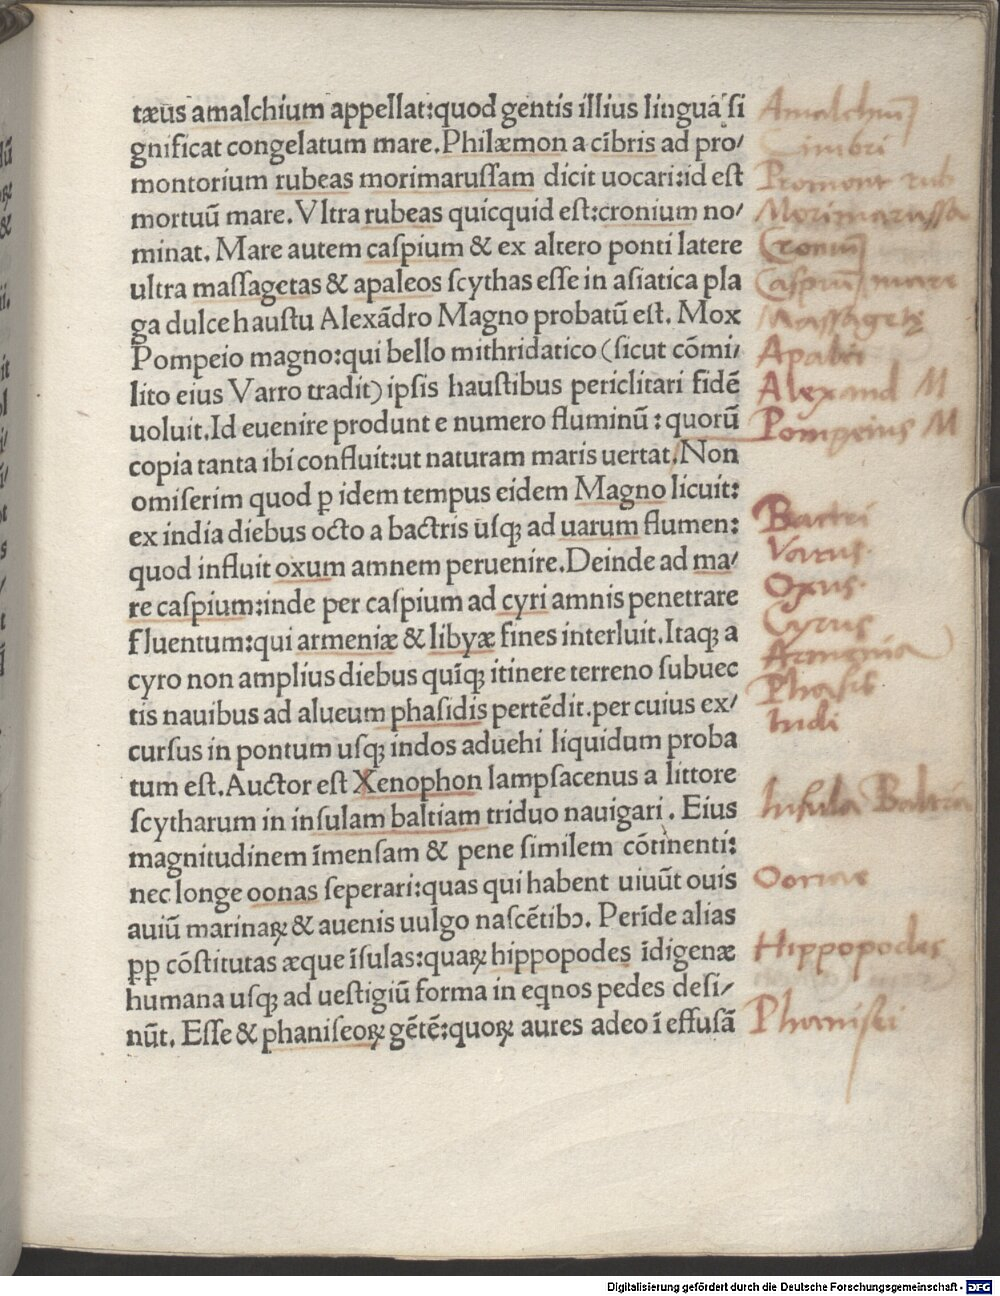 tæus amalchium appellat:quod gentis illius lingua si
gnificat congelatum mare.Philæmon a cibris ad pro/
montorium rubeas morimarussam dicit uocari:id est
mortuū mare. Vltra rubeas quicquid est:cronium no/
minat. Mare autem caspium & ex altero ponti latere
ultra massagetas & apaleos scythas esse in asiatica pla
ga dulce haustu Alexādro Magno probatū est. Mox
Pompeio magno:qui bello mithridatico (sicut cōmi/
lito eius Varro tradit) ipsis haustibus periclitari fidē
uoluit.Id euenire produnt e numero fluminū : quorū
copia tanta ibi confluit:ut naturam maris uertat.Non
omiserim quod ꝑ idem tempus eidem Magno licuit:
ex india diebus octo a bactris usqꝫ ad uarum flumen:
quod influit oxum amnem peruenire.Deinde ad ma/
re caspium:inde per caspium ad cyri amnis penetrare
fluentum:qui armeniæ & libyæ fines interluit.Itaqꝫ a
cyro non amplius diebus quīqꝫ itinere terreno subuec
tis nauibus ad alueum phasidis pertēdit.per cuius ex/
cursus in pontum usqꝫ indos aduehi liquidum proba
tum est.Auctor est Xenophon lampsacenus a littore
scytharum in insulam baltiam triduo nauigari. Eius
magnitudinem īmensam & pene similem cōtinenti:
nec longe oonas seperari:quas qui habent uiuūt ouis
auiū marinaꝝ & auenis uulgo nascētibꝰ. Perīde alias
ꝓꝑ cōstitutas æque īsulas:quaꝝ hippopodes īdigenæ
humana usqꝫ ad uestigiū forma in eqnos pedes desi/
nūt. Esse & phaniseoꝝ gētē:quoꝝ aures adeo ī effusā
Amalchiū
Cimbri
Promont rub
Morimarussa
Croniū
Caspiū mare
Massagetę
Apalei
Alexand M
Pompeius M
Bactri
Varus
Oxus
Cyrus
Armenia
Phasis
Indi
Insula Baltia
Oonae
Hippopodes
Phanisei
Digitalisierung gefördert durch die Deutsche Forschungsgemeinschaft - DFG